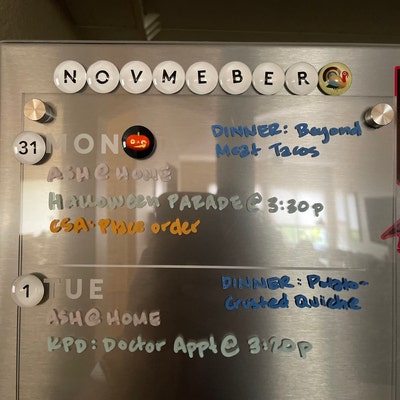 NOVMEBER
31
MON
DINNER: Beyond
Meat Tacos
ASH@HOME
HALLOWEEN PARADE@3:30p
CSA: Place order
1
TUE
DINNER: Potato-
Crusted Quiche
ASH@HOME
KPD: Doctor Appt@ 3:20p